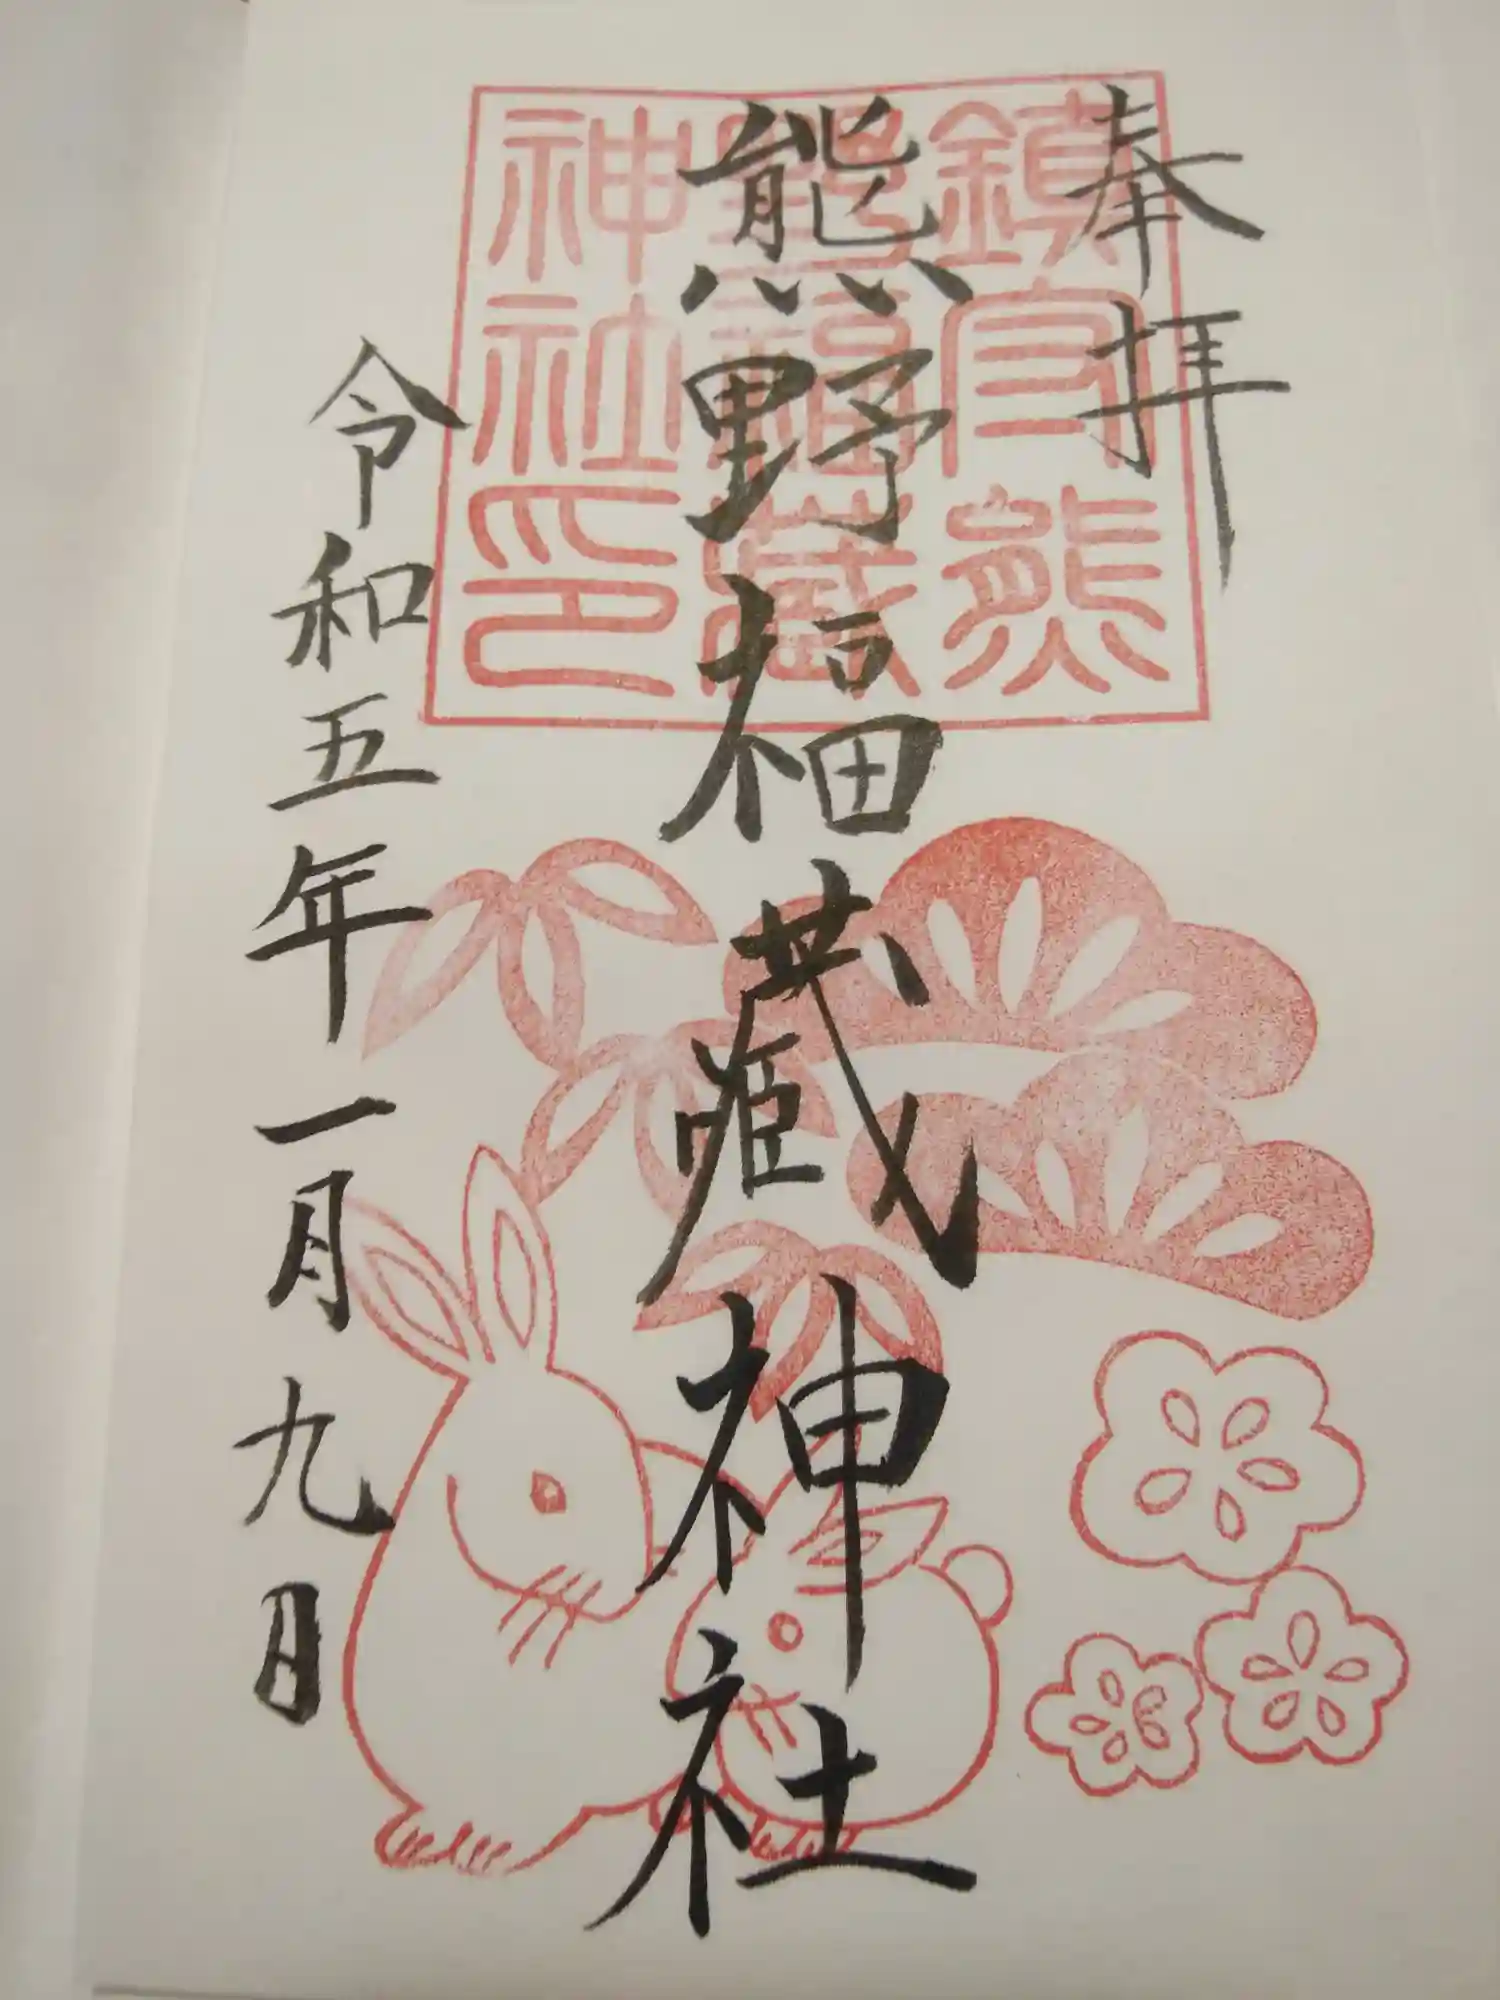 奉拝
熊野福藏神社
令和五年一月九日
鎮守熊
野福藏
神社印